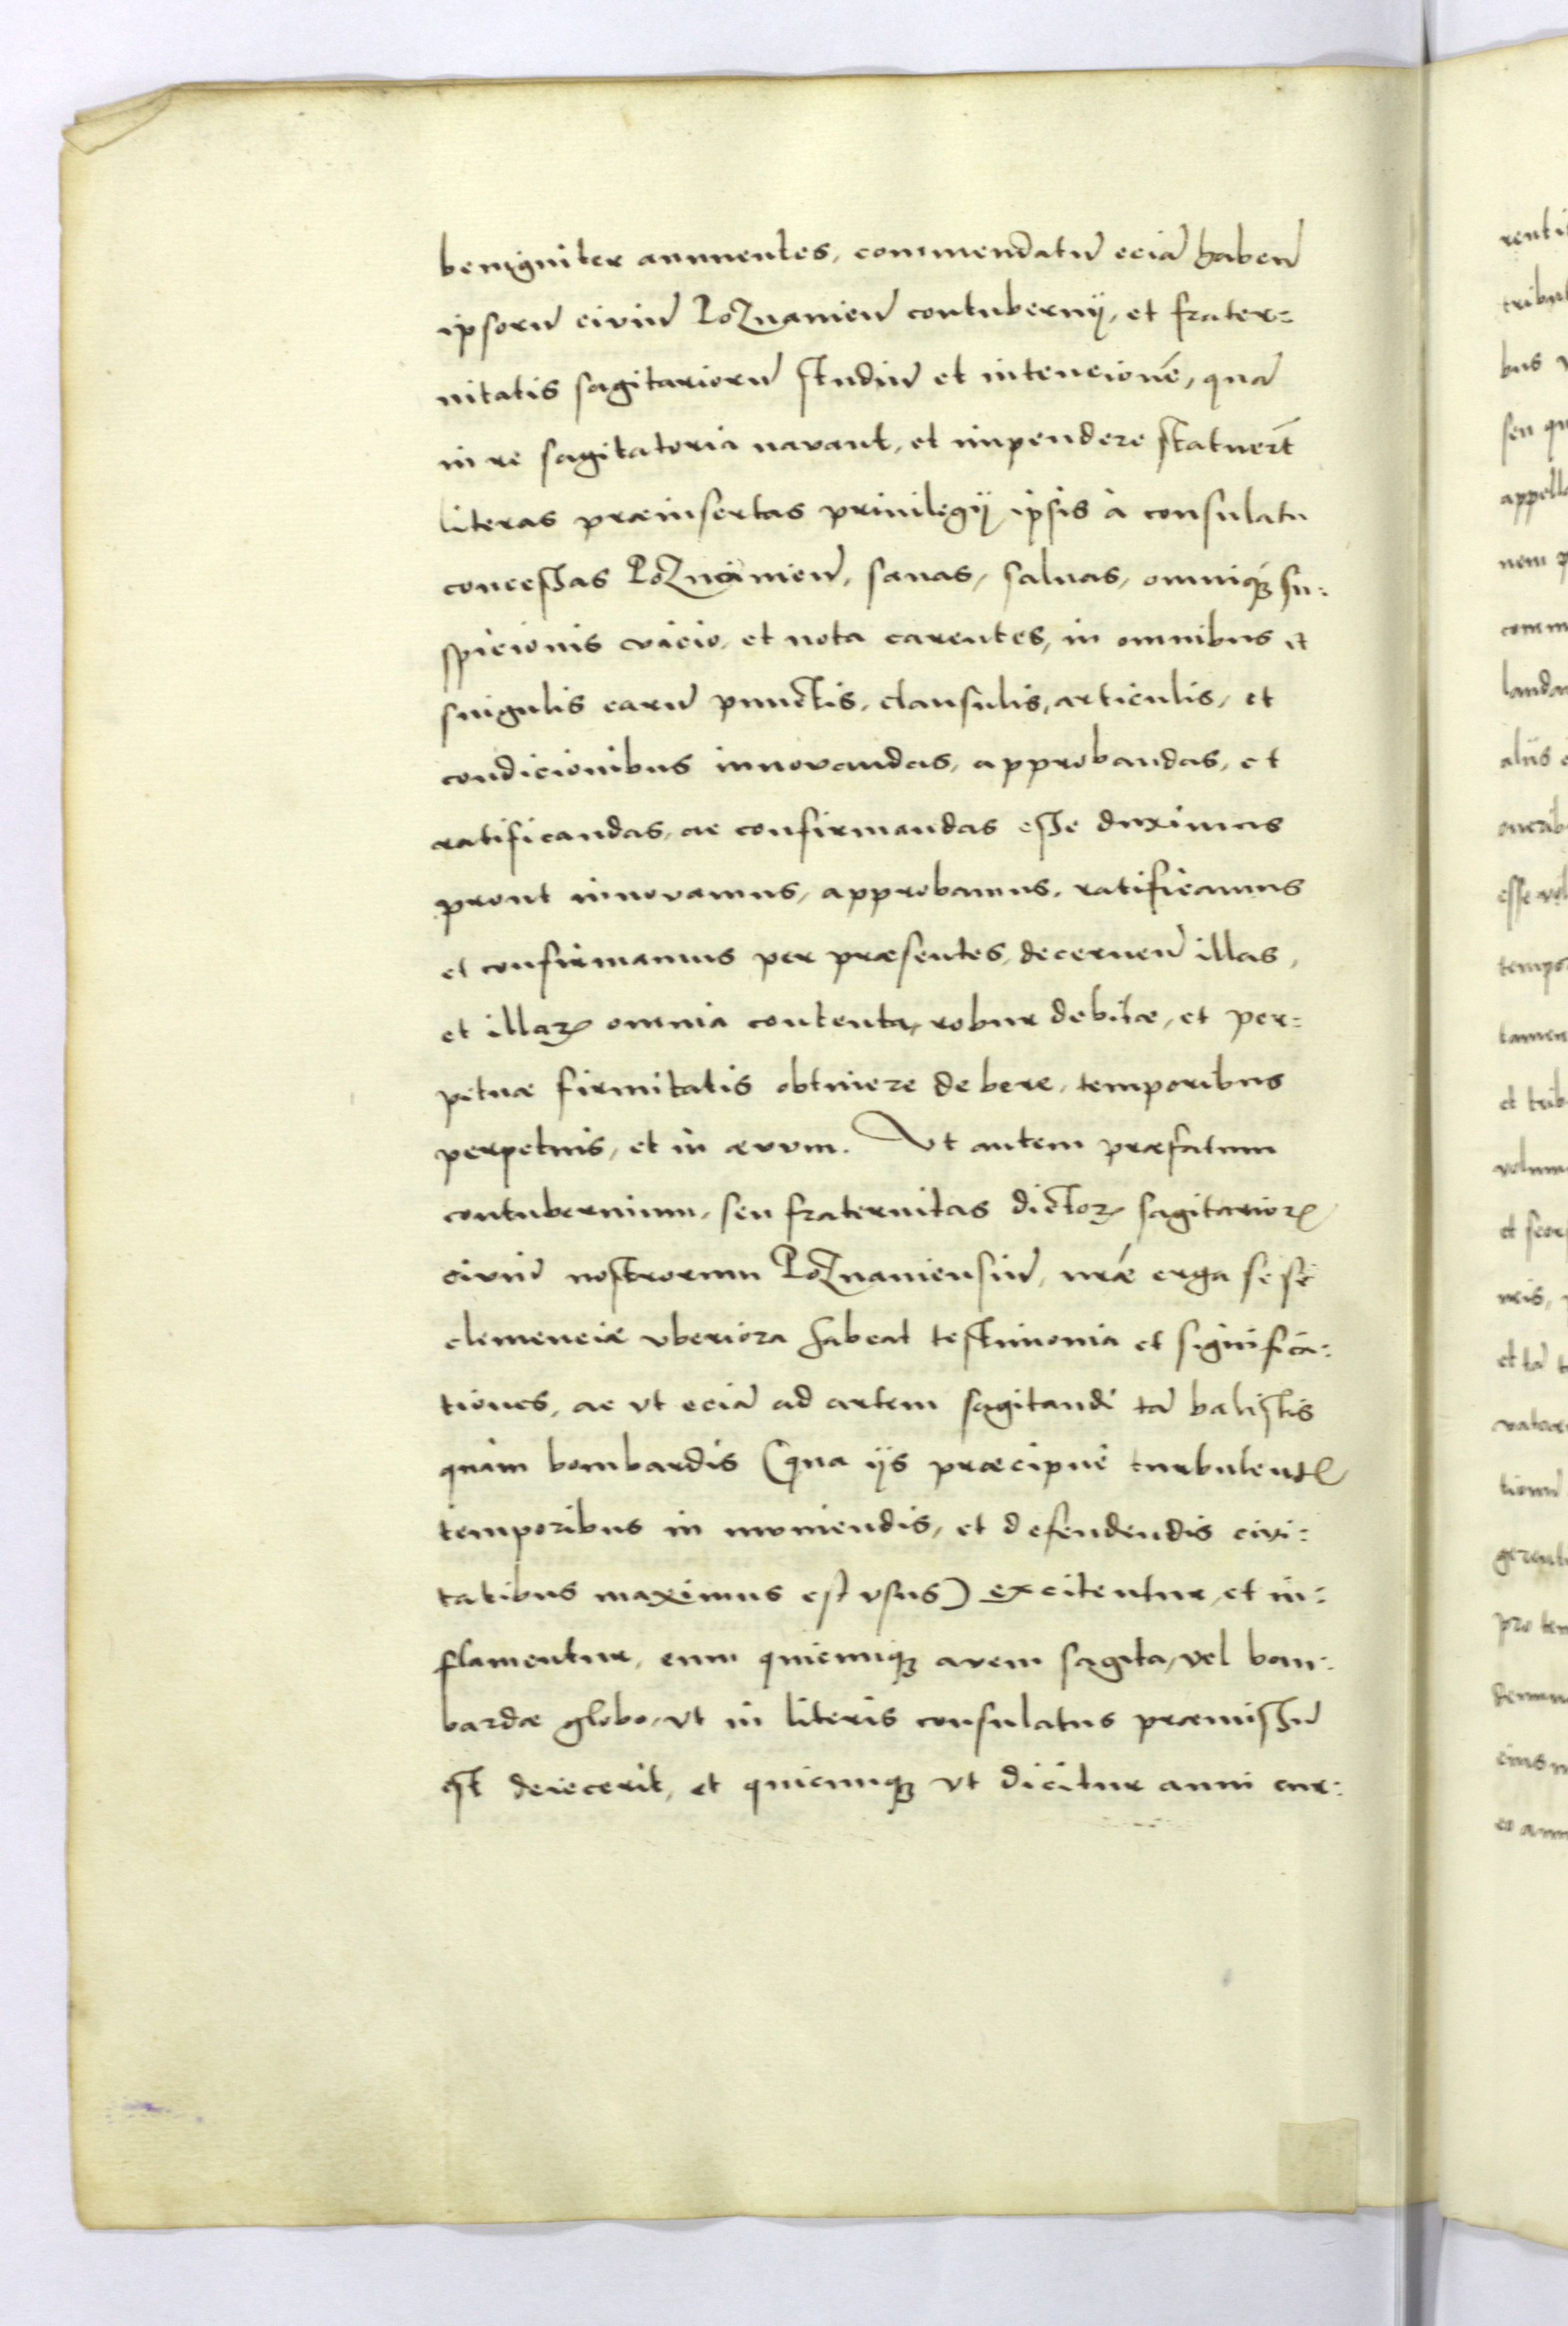 benigniter annuentes, commendatũ eciã habeñ
ipsorũ civiũ Poznanieñ contubernij, et frater=
nitatis sagitariorũ studiũ et intencionẽ, quã
in re sagitatoria navant, et impendere statuert̃
literas præinsertas priuilegij ipsis à consulatu
concessas Poznanieñ, sanas, saluas, omniq́ꝫ su=
spicionis vicio, et nota carentes, in omnibus et
singulis earũ punctis, clausulis, articulis, et
condicionibus innovandas, approbandas, et
ratificandas, ac confirmandas esse duximus
prout innovamus, approbamus, ratificamus
et confirmamus per præsentes, decerneñ illas,
et illaꝝ omnia contenta, robur debitæ, et per=
petuæ firmitatis obtinere debere, temporibus
perpetuis, et in ævum. Vt autem præfatum
contubernium, seu fraternitas dictoꝝ sagitarioꝝ
civiũ nostrorum Poznaniensiũ, nr̃æ erga se se
clemenciæ vberiora habeat testimonia et significa=
tiones, ac vt eciã ad artem sagitandi tã balistis
quàm bombardis (qua ijs præcipuè turbulentꝭ
temporibus in muniendis, et defendendis civi=
tatibus maximus est vsus) excitentur, et in=
flamentur, eum quicunqꝫ avem sagita, vel bom=
bardæ globo, vt in literis consulatus præmissũ
est deiecerit, et quicunqꝫ vt dicitur anni cur=